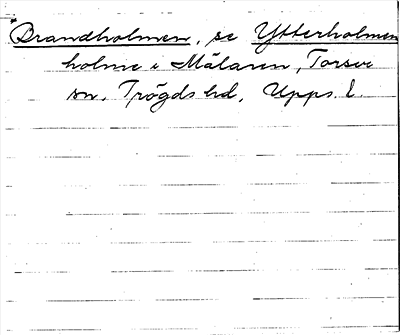 Brandholmen, se Ytterholmen
holme i Mälaren, Torsvi
sn, Trögds hd, Upps. l.